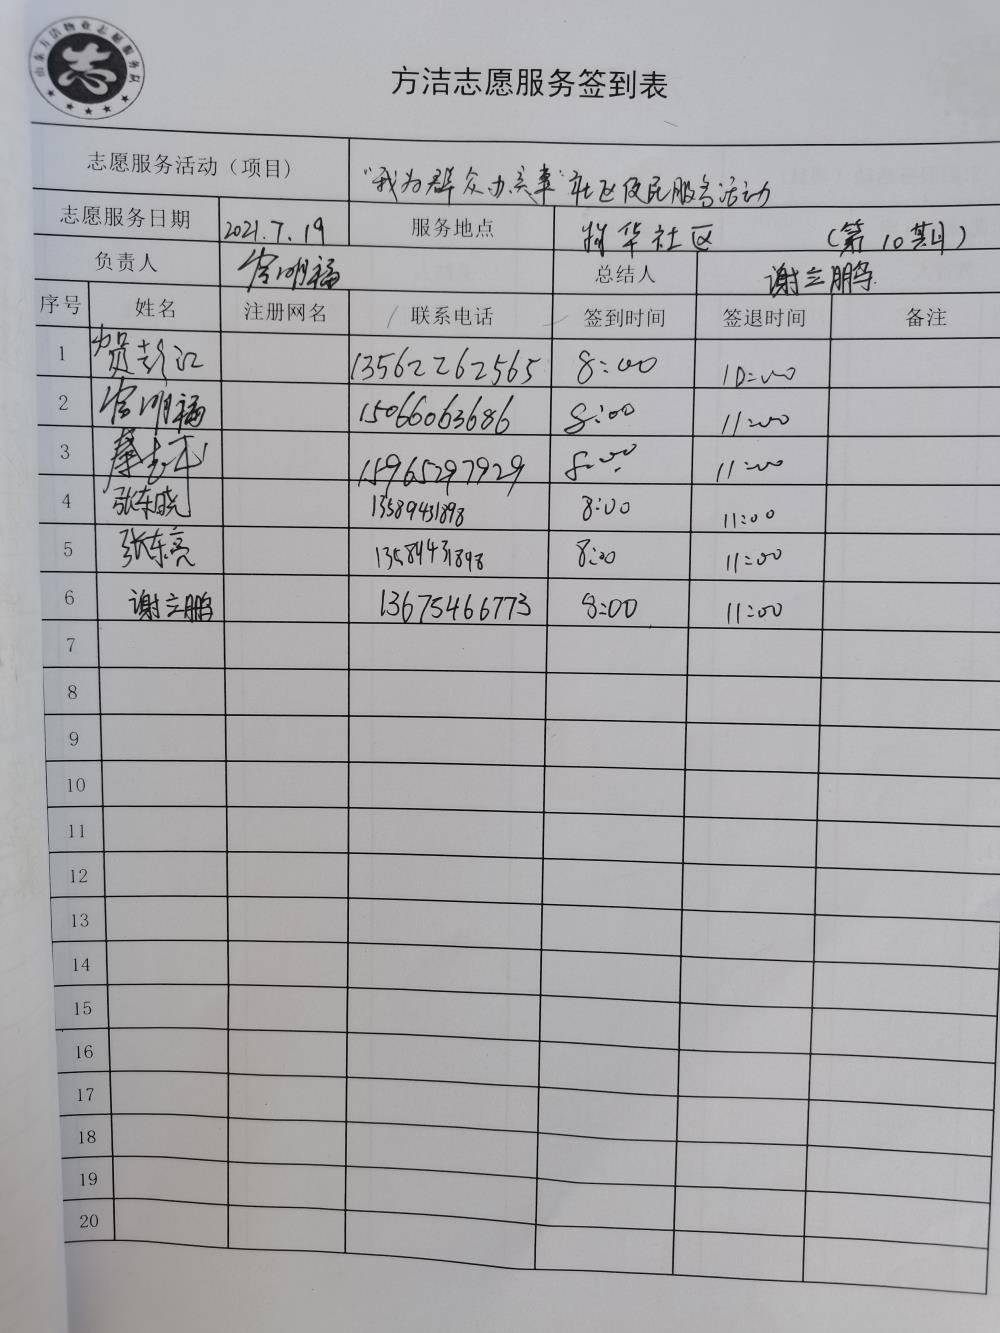 山东方洁物业志愿服务队
志
方洁志愿服务签到表
志愿服务活动（项目） "我为群众办实事"社区便民服务活动
志愿服务日期 2021.7.19 服务地点 华社区 （第10期）
负责人 明福 总结人 谢立鹏
序号 姓名 注册网名 联系电话 签到时间 签退时间 备注
1 贺彭江 13562262565 8:00 10:00
2 明福 15066063686 8:00 11:00
3 15965297929 8:00 11:00
4 张东晓 13589431898 8:00 11:00
5 张东亮 13589431898 8:00 11:00
6 谢立鹏 13675466773 8:00 11:00
7
8
9
10
11
12
13
14
15
16
17
18
19
20